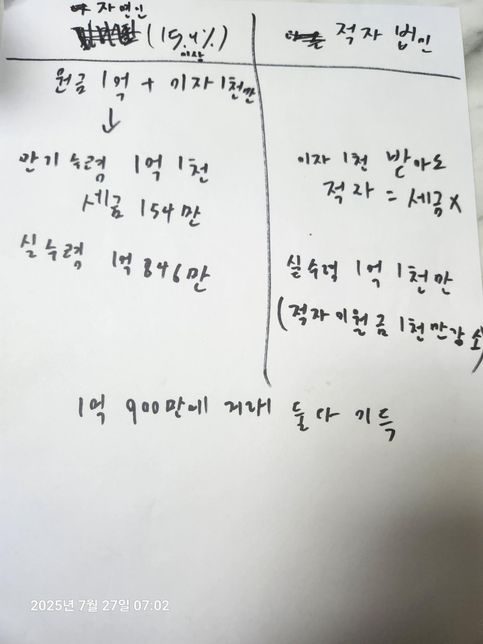 자연인
(15.4%)
이상
원금 1억 + 이자 1천만
↓
만기수령 1억 1천
세금 154만
실수령 1억 846만
적자 법인
이자 1천 받아도
적자 = 세금 X
실수령 1억 1천만
(적자이월금 1천만 감소)
1억 900만에 거래 둘다 기득
2025년 7월 27일 07:02